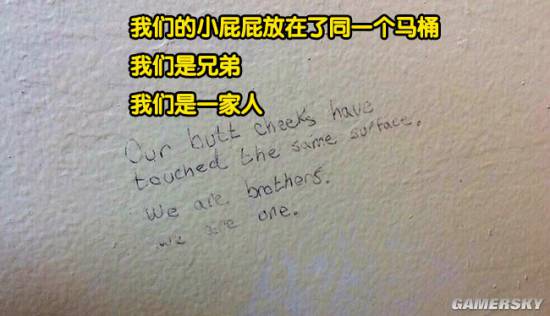 我们的小屁屁放在了同一个马桶
我们是兄弟
我们是一家人
Our butt cheeks have
touched the same surface.
We are brothers.
we are one.
GAMERSKY